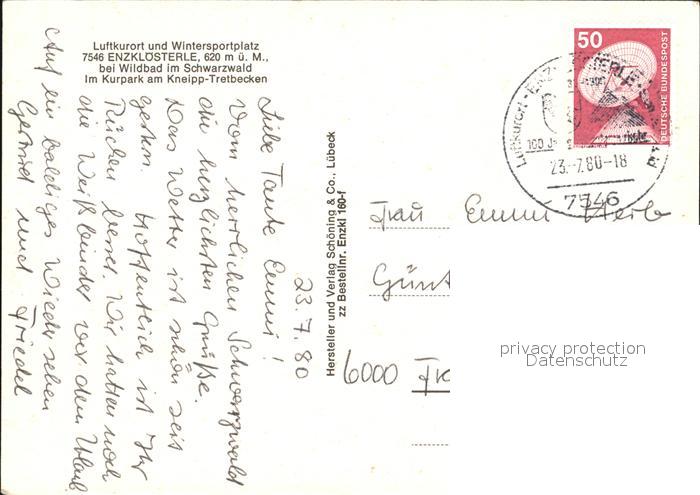 Luftkurort und Wintersportplatz
7546 ENZKLÖSTERLE, 620 m ü. M.,
bei Wildbad im Schwarzwald
Im Kurpark am Kneipp-Tretbecken
23.7.80
Liebe Tante Emmi!
Vom herrlichen Schwarzwald
die herzlichsten Grüße.
Das Wetter ist schön seit
gestern. Hoffentlich ist Ihr
Rücken besser. Wir hatten noch
die Weißbinder vor dem Urlaub.
Auf ein baldiges Wiedersehen
Gertrud und Friedel
Hersteller und Verlag Schöning & Co., Lübeck
zz Bestellnr. Enzkl 160-f
50
DEUTSCHE BUNDESPOST
Luftkurort
23.-7.80-18
7546
Frau Emmi
Günt
6000 Fr
privacy protection
Datenschutz